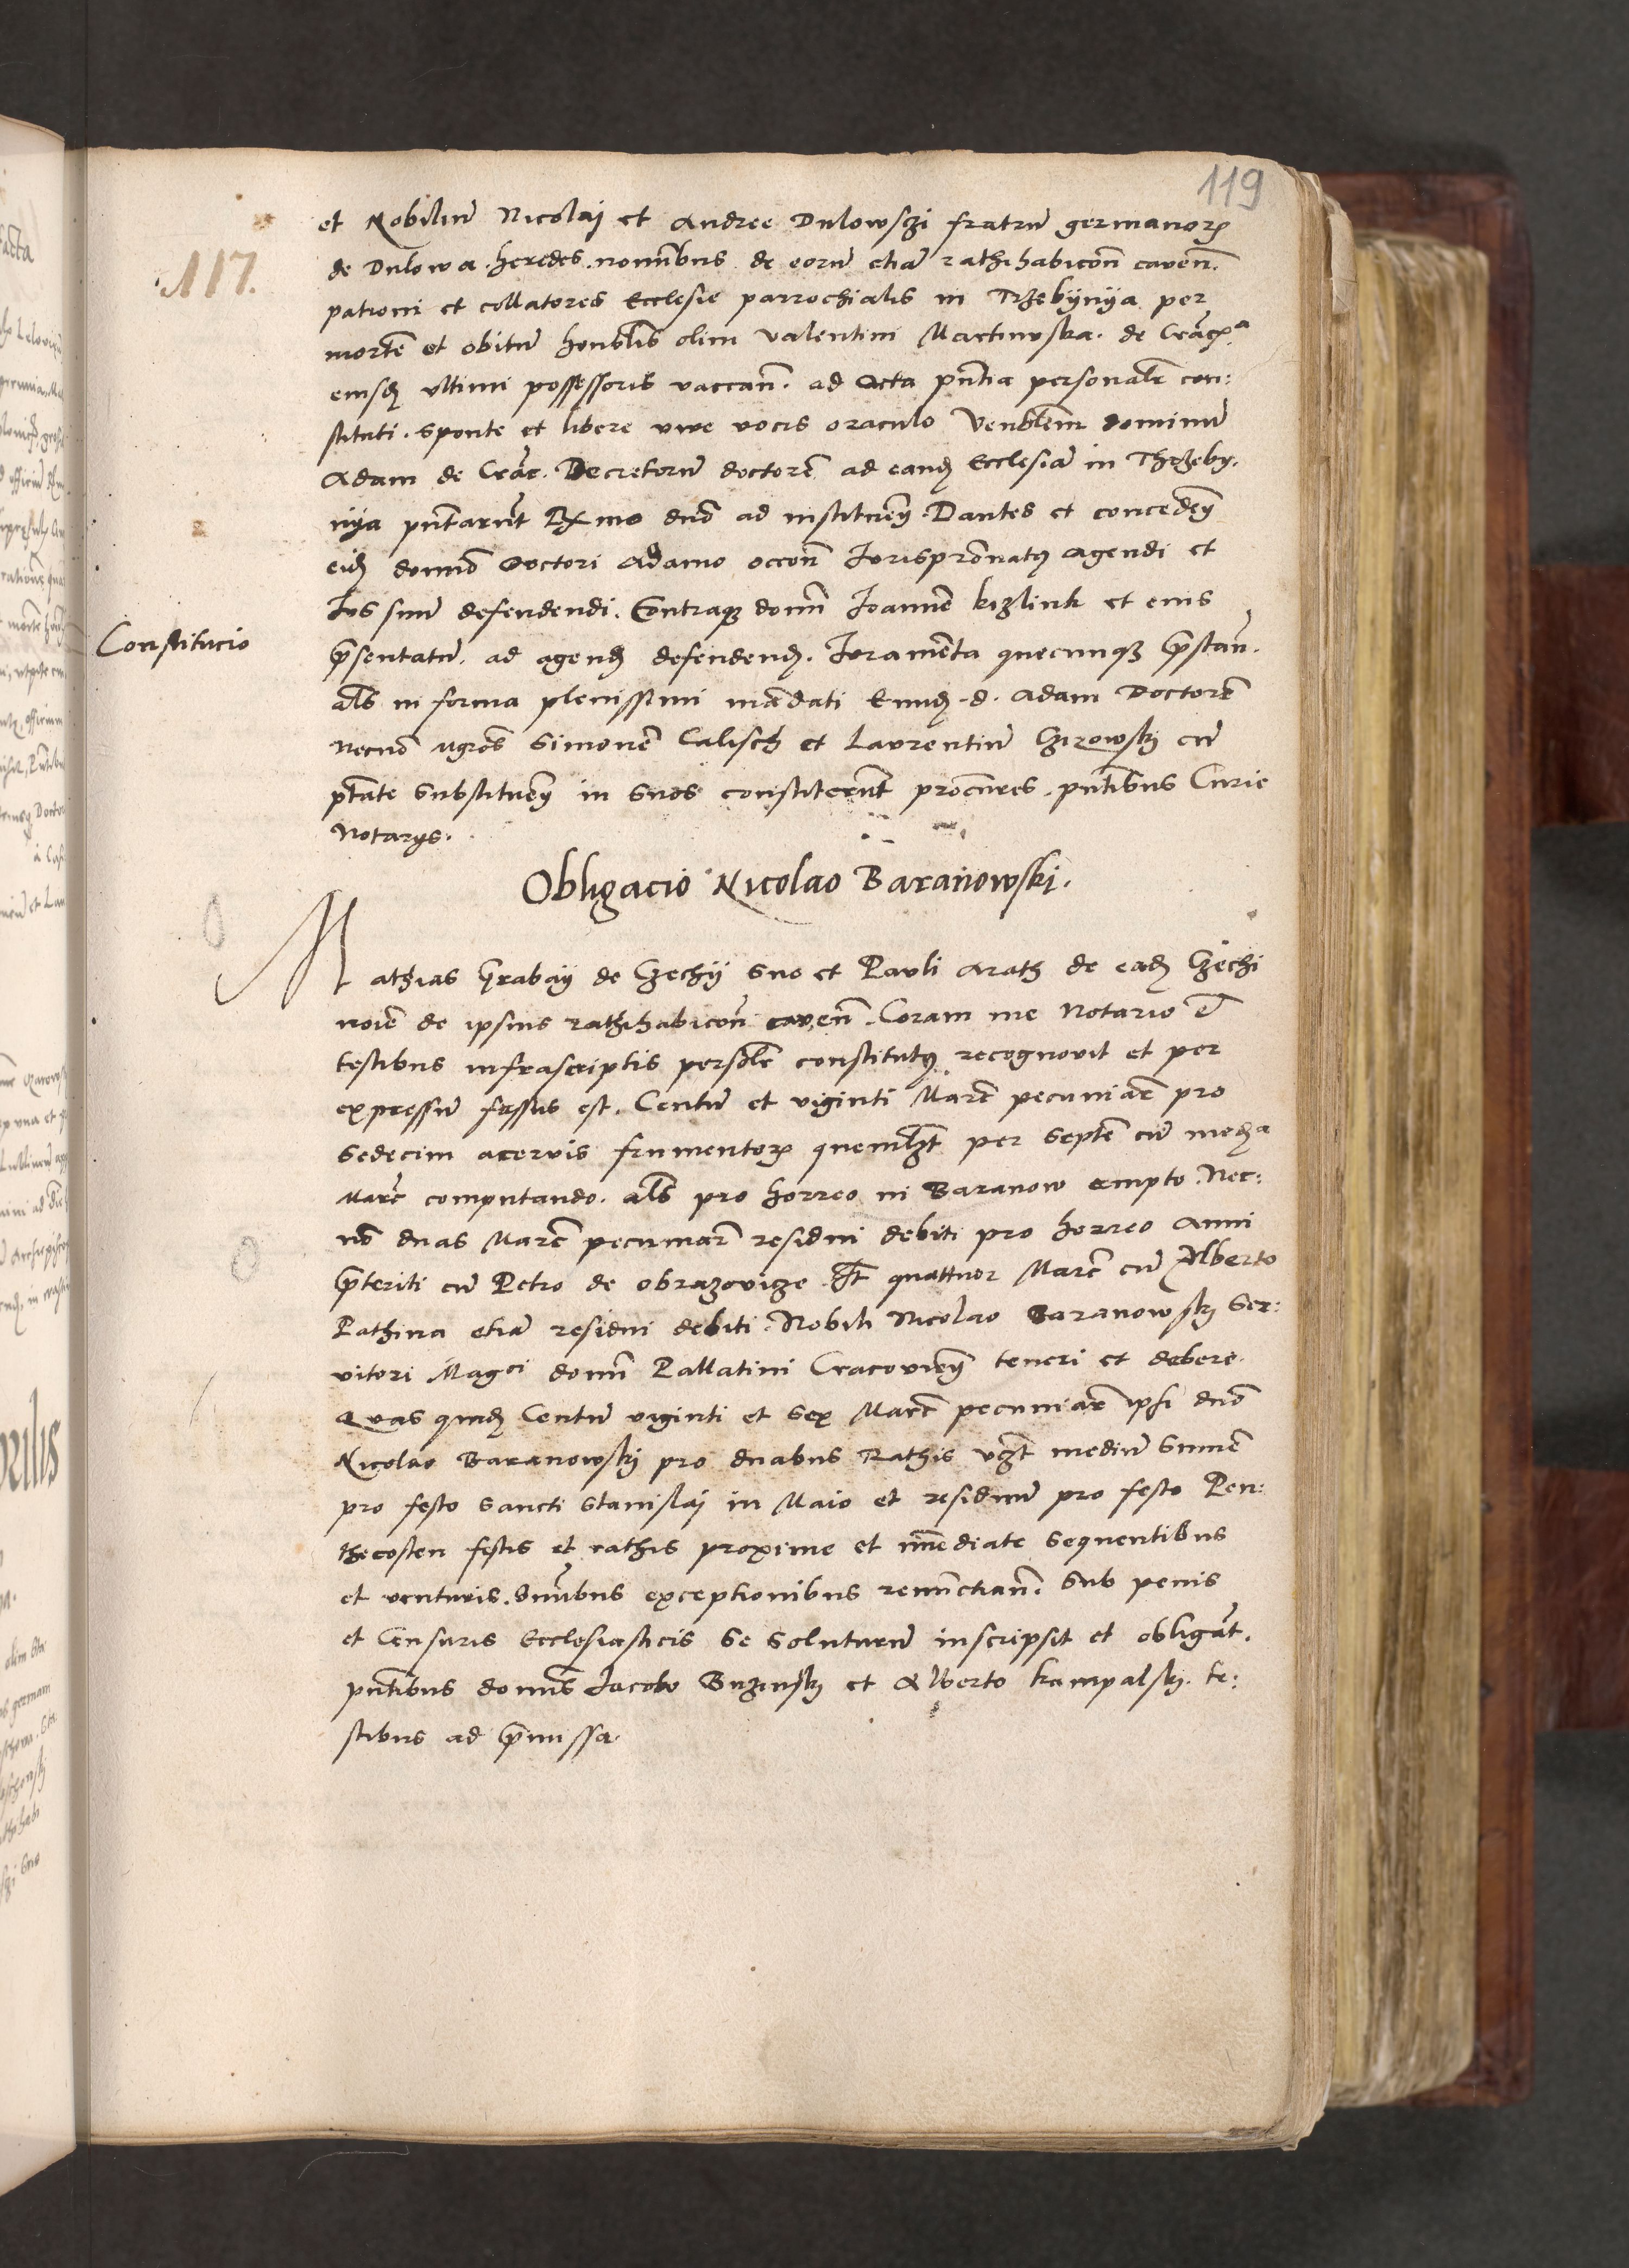 119
117.
et Nobiliu͂ Nicolaj et Andree Dulowsʒki fratru͂ germanorꝝ
de Dulowa heredes nomi͂bus de eoru͂ etia͂ rathihabicon͂ caven͂.
patroni et collatores Ecclesie parrochialis in Trʒebÿnÿa per
morte͂ et obitu͂ honͦblis͂ olim Valentini Martinoska. de Crac͂
eiusdꝫ ultimi possessoris vaccan͂. ad Acta pn͂tia personalr͂ con:
stituti. sponte et libere vive vocis oraculo Venblem͂ dominu͂
Adam de Crac͂. Decretoru͂ doctore͂ ad eandꝫ Ecclesia͂ in Thrʒeby.
nya pn͂tarun͂t Rx͂mo dno͂ ad instituen͂ Dantes et conceden͂
eidꝫ domno͂ Doctori Adamo occon͂ Jurispron͂atus agendi et
Jus suu͂ defendendi. Contraqꝫ domn͂ Joanne͂ kiʒlink et eius
p͂sentatu͂. ad agendꝫ defendendꝫ. Juramenta͂ quecunqꝫ p͂stan͂.
als͂ in forma plenissimi ma͂dati Eundꝫ. d. Adam Doctore͂
Necno͂ mgros͂ Simone͂ Calisch et Laurentiu͂ Cʒirowskj cu͂
ptate͂ substituen͂ in suos constiterun͂t procu͂res. pn͂tibus Curie
Notarys.
Constitucio
Obligacio Nicolao Baranowski.
Mathias Grabaÿ de Cʒechÿ suo et Pauli Arath de eadꝫ Cʒechi
noi͂e de ipsius rathihabicon͂ caven͂. Coram me Notario et
testibus infrascriptis persol͂r constitutus recognovit et per
expressu͂ fassus est. Centu͂ et viginti Marc͂ pecuniar͂ pro
sedecim acervis frumentorꝝ quemlʒt͂ per septe͂ cu͂ medꝫa
Marc͂ computando. als͂ pro horreo in Baranow empto. Nec:
no͂ duas Marc͂ pecuniar͂ residui debiti pro horreo Anni
p͂teriti cu͂ Petro de obraʒovicʒe. It͂ quattuor Marc͂ cu͂ Alberto
Pathina etia͂ residui debiti. Nobili Nicolao Baranowskj ser:
vitori Magci domn͂ Pallatini Cracovien͂ teneri et debere.
Quas quidꝫ Centu͂ viginti et sex Marc͂ pecuniar͂ ipsi dno͂
Nicolao Baranowskj pro duabus Rathis vʒt͂ mediu͂ summe͂
pro festo sancti Stanislaj in Maio et residuu͂ pro festo Pen:
thecosten festis et rathis proxime et imm͂ediate sequentibus
et venturis. Omi͂bus exceptionibus renunctian͂. Sub penis
et Censuris Ecclesiasticis se soluturu͂ inscripsit et obligav͂t.
pn͂tibus domis͂ Jacobo Buʒinskj et Alberto kampalskj. te:
stibus ad p͂missa.